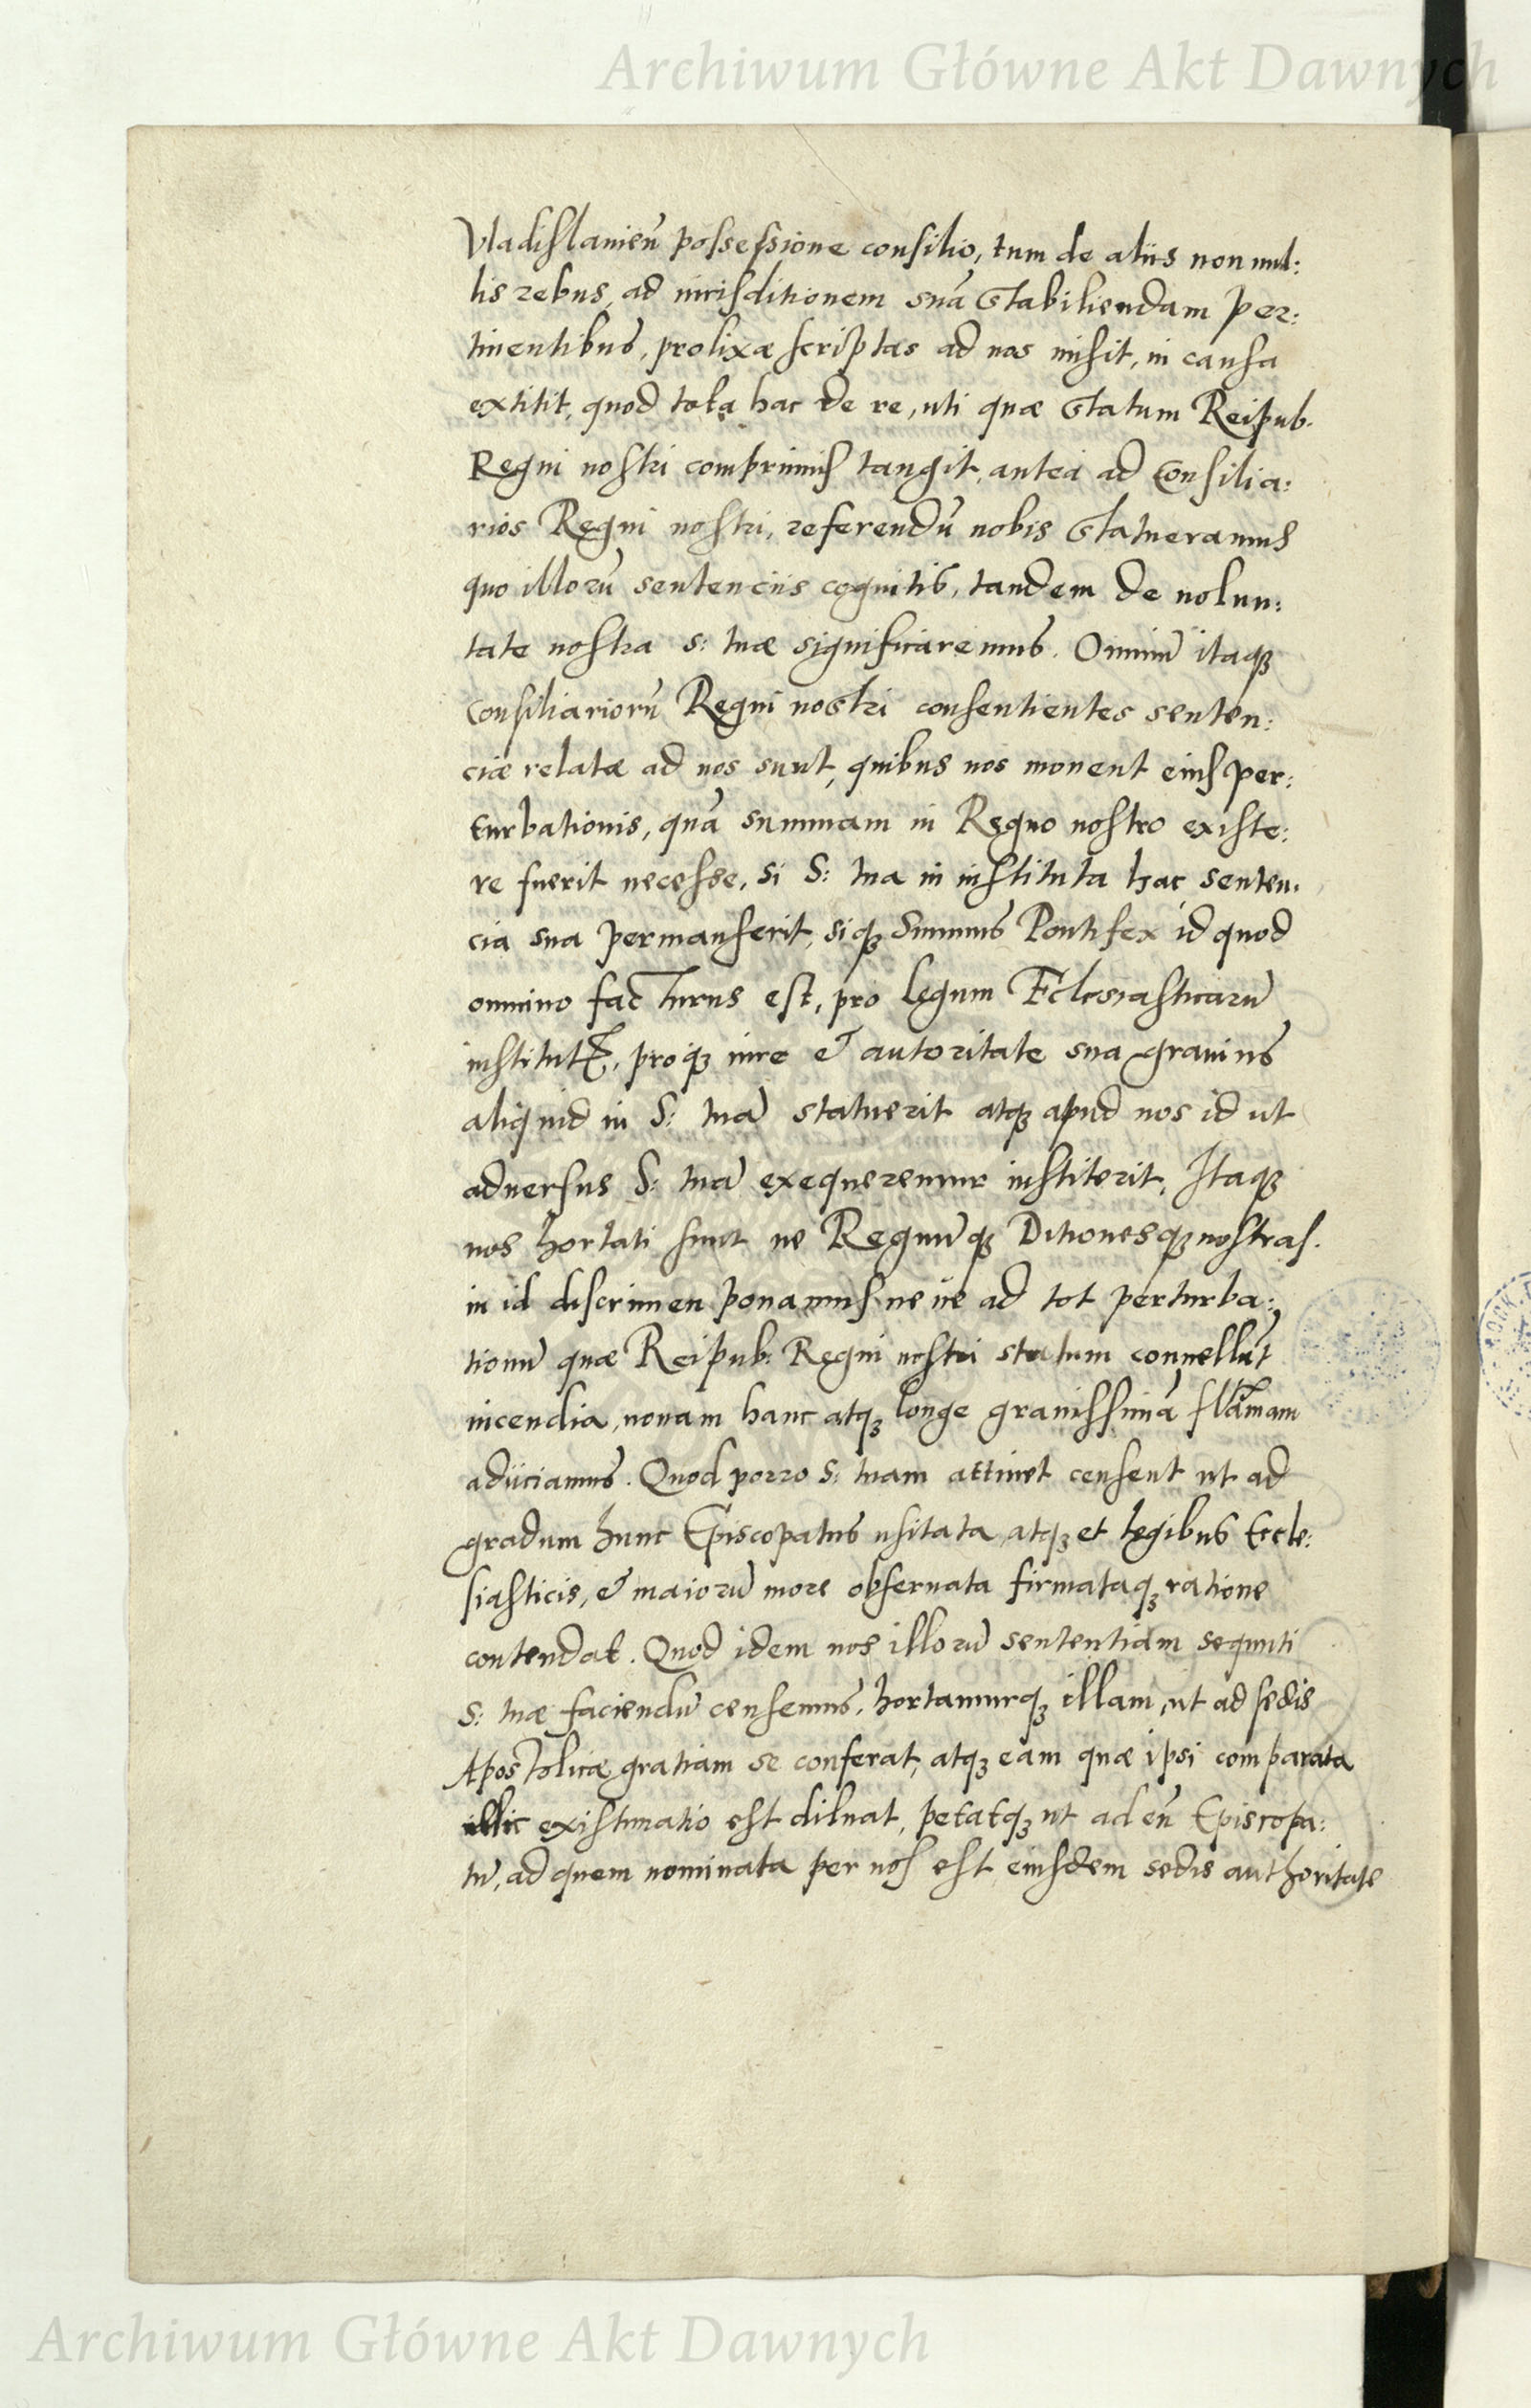 Archiwum Główne Akt Dawnych
Vladislauien̄ possessione consilio, tum de aliis non nul:
lis rebus, ad iurisditionem suā stabiliendam per:
tinentibus, prolixæ scriptas ad nos misit, in causa
extitit, quod tota hac de re, uti quæ statum Reipub.
Regni nostri comprimis tangit, antea ad Consilia:
rios Regni nostri, referendū nobis statueramus
quo illorū sentenciis cognitis, tandem de uolun:
tate nostra S: tuæ significaremus. Omniū itaqꝫ
Consiliariorū Regni nostri consentientes senten:
ciæ relatæ ad nos sunt, quibus nos monent eius per:
turbationis, quā summam in Regno nostro existe:
re fuerit necesse, si S: tua in instituta hac senten:
cia sua permanserit, siqꝫ Summus Pontifex id quod
omnino facturus est, pro legum Eclesiasticarū
institut, proqꝫ iure & autoritate sua grauius
aliquid in S: tuā statuerit atqꝫ apud nos id ut
aduersus S: tuā exequeremur institerit, Itaqꝫ
nos hortati sunt ne Regnūqꝫ Ditionesqꝫ nostras.
in id discrimen ponamus neue ad tot perturba:
tionū quæ Reipub: Regni nostri statum conuellūt
incendia, nouam hanc atqꝫ longe grauissimā flāmam
adiiciamus. Quod porro S: tuam attinet censent ut ad
gradum hunc Episcopatus usitata atqꝫ et legibus Eccle:
siasticis, & maiorū more obseruata firmataqꝫ ratione
contendat. Quod idem nos illorū sententiam sequuti
S: tuæ faciendū censemus, hortamurqꝫ illam, ut ad sedis
Apostolicæ gratiam se conferat, atqꝫ eam quæ ipsi comparata
illic existimatio est diluat, petatqꝫ ut ad eū Episcopa:
tū, ad quem nominata per nos est eiusdem sedis authoritate
Archiwum Główne Akt Dawnych